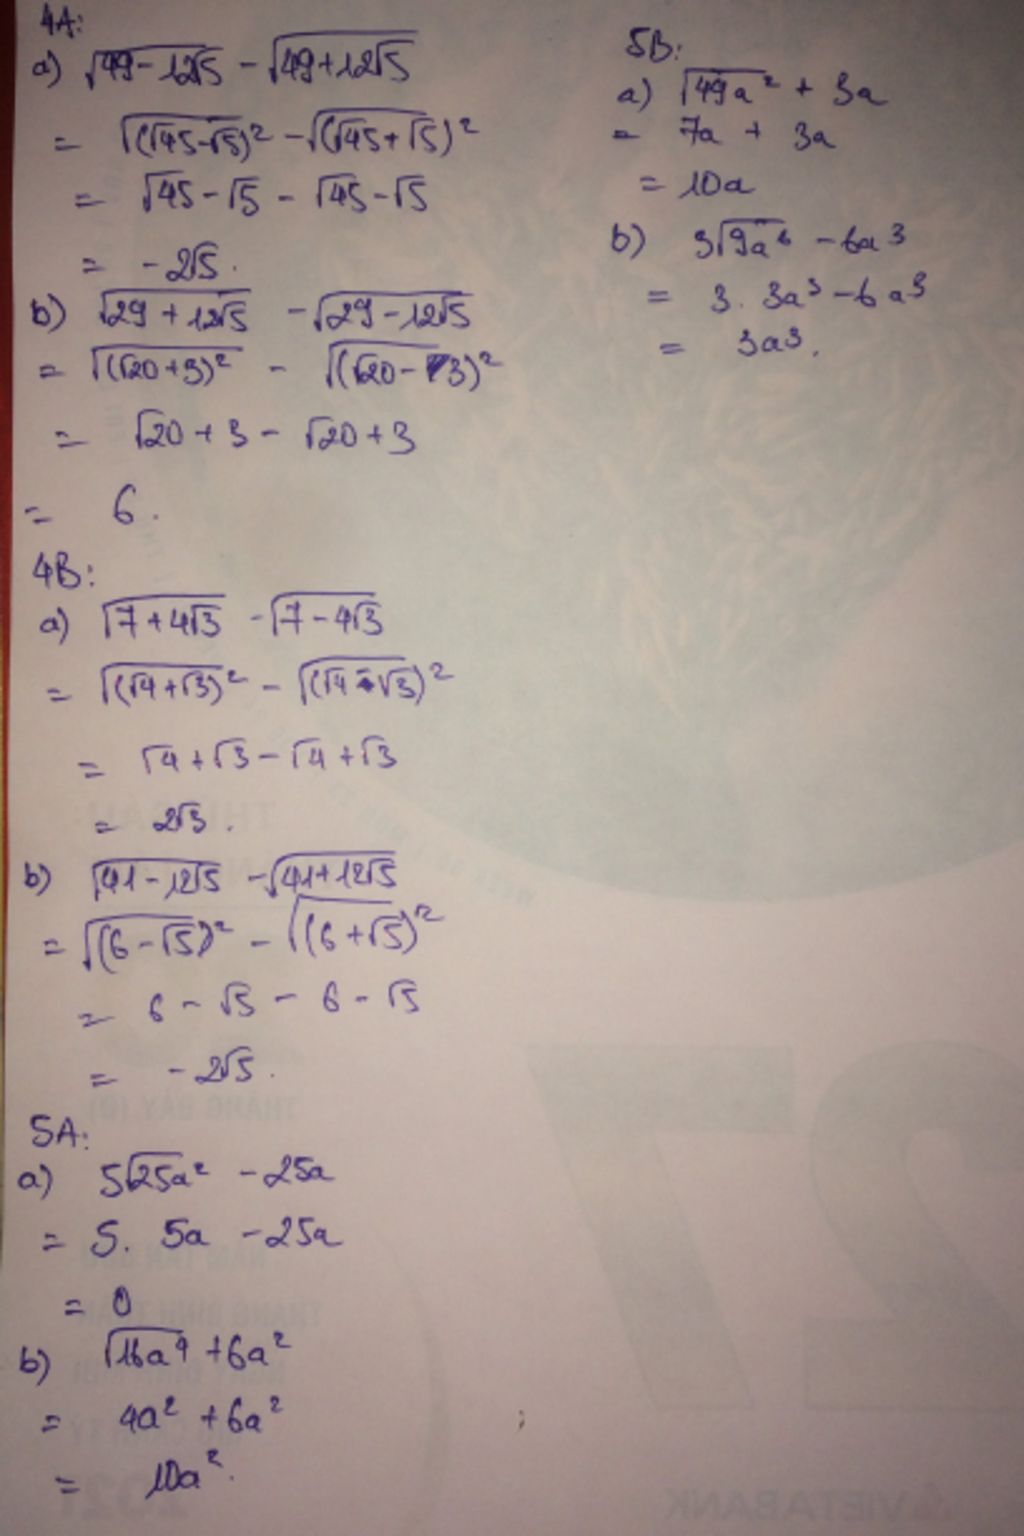 4A:
a) √(49-12√5) - √(49+12√5)
= √((√45-√5)²) - √((√45+√5)²)
= √45 - √5 - √45 - √5
= -2√5.
b) √(29+12√5) - √(29-12√5)
= √((√20+3)²) - √((√20-3)²)
= √20 + 3 - √20 + 3
= 6.
4B:
a) √(7+4√3) - √(7-4√3)
= √((√4+√3)²) - √((√4-√3)²)
= √4 + √3 - √4 + √3
= 2√3.
b) √(41-12√5) - √(41+12√5)
= √((6-√5)²) - √((6+√5)²)
= 6 - √5 - 6 - √5
= -2√5.
5A:
a) 5√(25a²) - 25a
= 5. 5a - 25a
= 0
b) √(16a⁴) + 6a²
= 4a² + 6a²
= 10a².
5B:
a) √(49a²) + 3a
= 7a + 3a
= 10a
b) 3√(9a⁶) - 6a³
= 3. 3a³ - 6a³
= 3a³.
27
VIETABANK